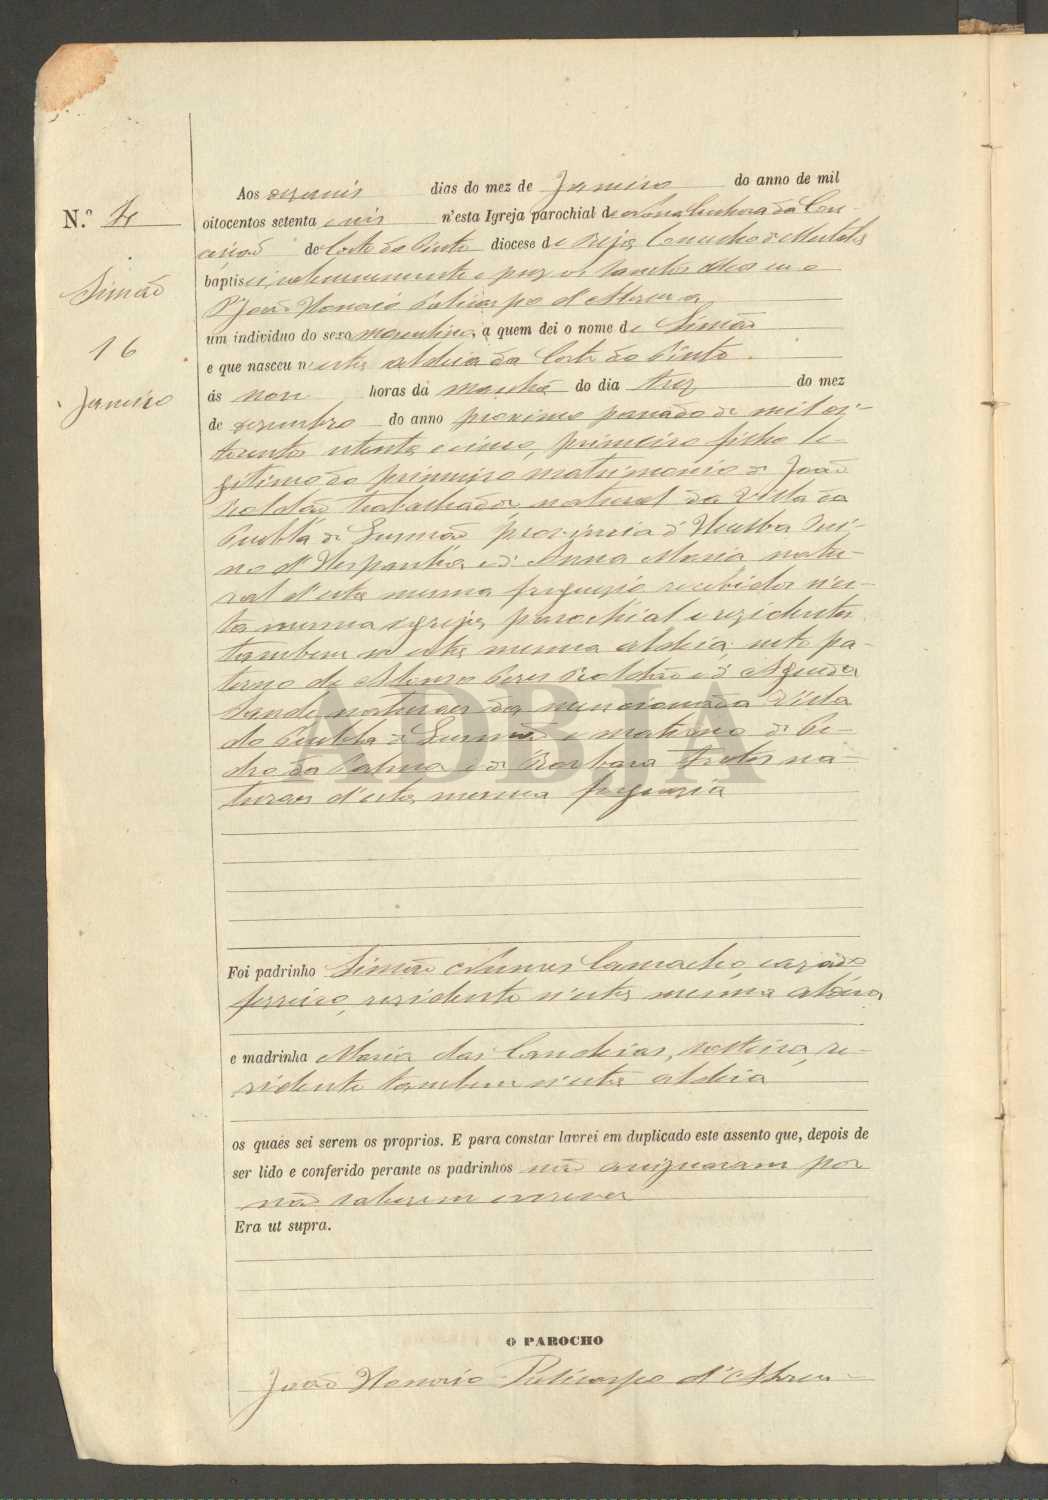 N.º 4
Simão
16
Janeiro
Aos dezaseis dias do mez de Janeiro do anno de mil
oitocentos setenta e seis n'esta Igreja parochial de Nossa Senhora da Con-
ceição de Corte do Pinto diocese de Beja Concelho de Mertola
baptisei solemnemente e puz os Santos Oleos eu o
P.e João Honorio Policarpo d'Abreu a
um individuo do sexo masculino a quem dei o nome de Simão
e que nasceu n'esta aldeia da Corte do Pinto
ás nove horas da manhã do dia trez do mez
de dezembro do anno proximo passado de mil oi-
tocentos setenta e cinco, primeiro filho le-
gitimo do primeiro matrimonio de João
Roldão trabalhador, natural da Villa da
Puebla de Gusmão provincia d'Huelba Rei-
no d'Hespanha e d'Anna Maria natu-
ral d'esta mesma freguesia recebidos n'es-
ta mesma egreja parochial e residentes
tambem n'esta mesma aldeia; neto pa-
terno de Alonso Peres Roldão e d'Agueda
naturaes da mencionada Villa
de Puebla de Gusmão e materno de Pe-
dro da Palma e de Barbara na-
turaes d'esta mesma freguezia
Foi padrinho Simão Nunes Camacho, cazado
ferreiro, rezidente n'esta mesma aldeia
e madrinha Maria das Candeias, solteira, re-
zidente tambem n'esta aldeia
os quaes sei serem os proprios. E para constar lavrei em duplicado este assento que, depois de
ser lido e conferido perante os padrinhos não assignaram por
não saberem escrever
Era ut supra.
O PAROCHO
João Honorio Policarpo d'Abreu
ADBJA